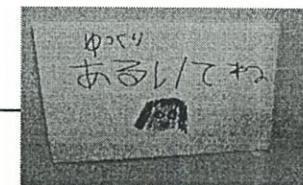 ゆっくり
あるいてね